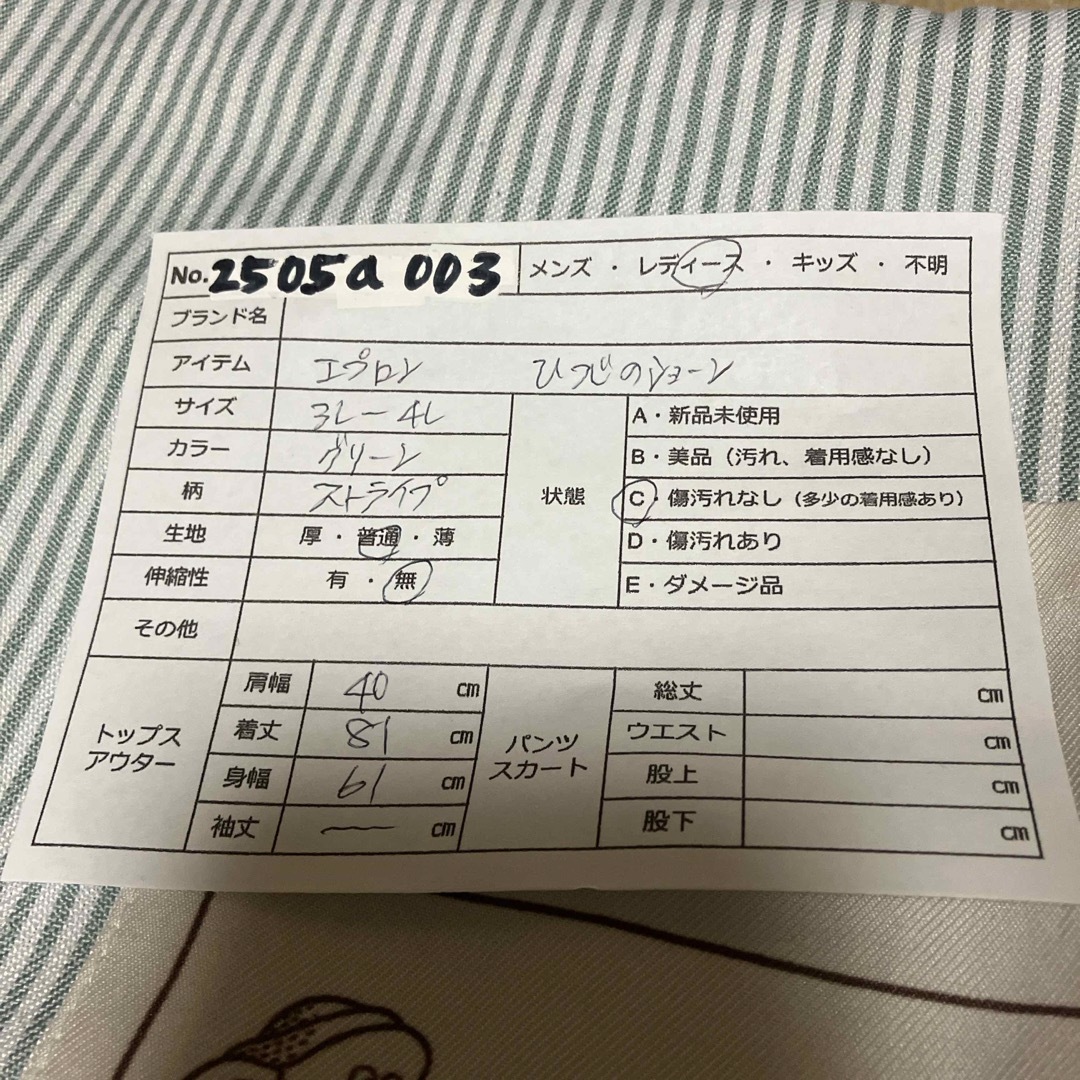 No. 2505a 003 メンズ ・ レディース ・ キッズ ・ 不明
ブランド名
アイテム エプロン ひつじのショーン
サイズ 3L-4L
カラー グリーン
柄 ストライプ
生地 厚 ・ 普通 ・ 薄
伸縮性 有 ・ 無
状態
A・新品未使用
B・美品（汚れ、着用感なし）
C・傷汚れなし（多少の着用感あり）
D・傷汚れあり
E・ダメージ品
その他
トップス
アウター
肩幅 40 cm
着丈 81 cm
身幅 61 cm
袖丈 ー cm
パンツ
スカート
総丈 cm
ウエスト cm
股上 cm
股下 cm